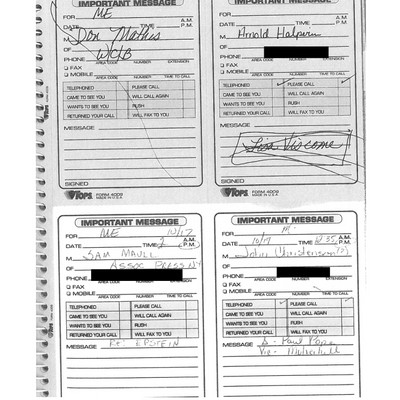 IMPORTANT MESSAGE
FOR ME
A.M.
DATE TIME P.M.
M Don Mathis
OF WCLB
PHONE
AREA CODE NUMBER EXTENSION
FAX
MOBILE
AREA CODE NUMBER TIME TO CALL
TELEPHONED PLEASE CALL
CAME TO SEE YOU WILL CALL AGAIN
WANTS TO SEE YOU RUSH
RETURNED YOUR CALL WILL FAX TO YOU
MESSAGE
SIGNED
TOPS FORM 4009
MADE IN U.S.A.
IMPORTANT MESSAGE
FOR
A.M.
DATE TIME P.M.
M Arnold Halpern
OF
PHONE
AREA CODE NUMBER EXTENSION
FAX
MOBILE
AREA CODE NUMBER TIME TO CALL
TELEPHONED PLEASE CALL
CAME TO SEE YOU WILL CALL AGAIN
WANTS TO SEE YOU RUSH
RETURNED YOUR CALL WILL FAX TO YOU
MESSAGE
Lisa Viscome
SIGNED
TOPS FORM 4009
MADE IN U.S.A.
IMPORTANT MESSAGE
FOR ME 10/17
A.M.
DATE TIME P.M.
M SAM MAULL
OF ASSOC PRESS
PHONE
AREA CODE NUMBER EXTENSION
FAX
MOBILE
AREA CODE NUMBER TIME TO CALL
TELEPHONED PLEASE CALL
CAME TO SEE YOU WILL CALL AGAIN
WANTS TO SEE YOU RUSH
RETURNED YOUR CALL WILL FAX TO YOU
MESSAGE RE: EPSTEIN
IMPORTANT MESSAGE
FOR
A.M.
DATE 10/17 TIME P.M.
M John Christensen
OF
PHONE
AREA CODE NUMBER EXTENSION
FAX
MOBILE
AREA CODE NUMBER TIME TO CALL
TELEPHONED PLEASE CALL
CAME TO SEE YOU WILL CALL AGAIN
WANTS TO SEE YOU RUSH
RETURNED YOUR CALL WILL FAX TO YOU
MESSAGE Paul Pope